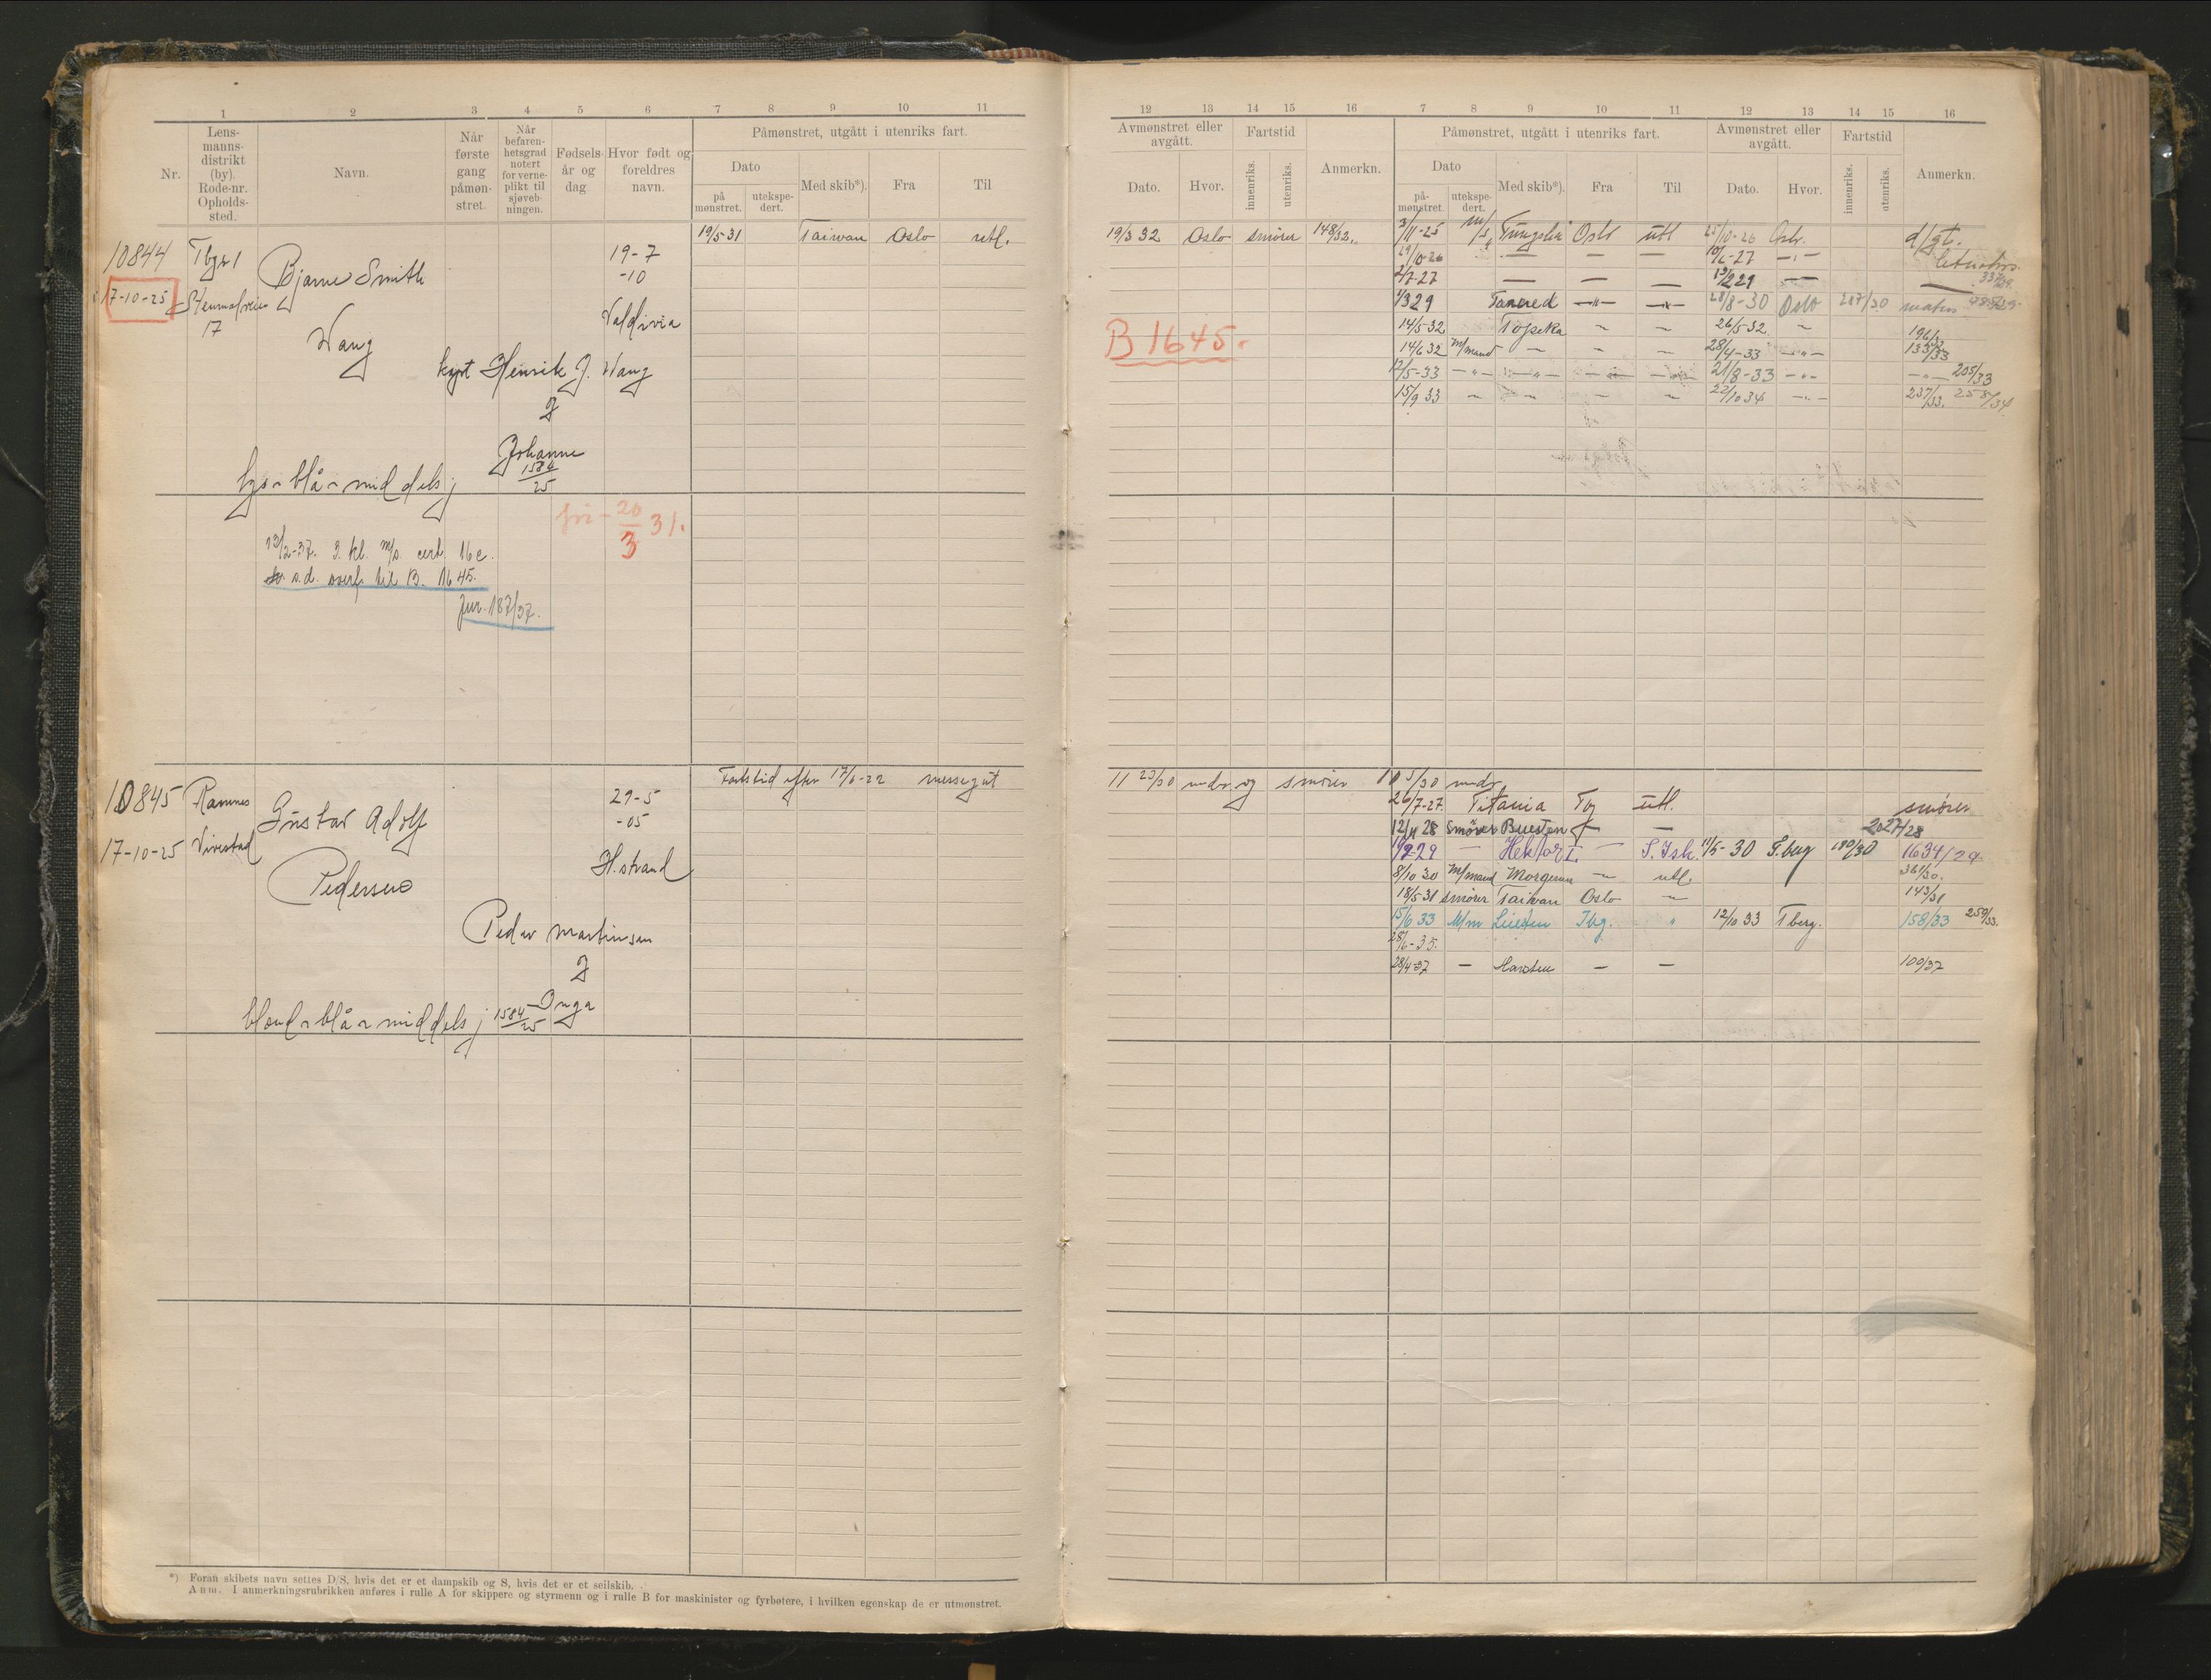 1 2 3 4 5 6 7 8 9 10 11
Nr.
Lens-
manns-
distrikt
(by).
Rode-nr.
Opholds-
sted.
Navn.
Når
første
gang
påmøn-
stret.
Når
befaren-
hetsgrad
notert
for verne-
plikt til
sjøveb-
ningen.
Fødsels-
år og
dag
Hvor født og
foreldres
navn.
Påmønstret, utgått i utenriks fart.
Dato
på
mønstret.
utekspe-
dert.
Med skib*).
Fra
Til
10844 Tbg
17-10-25
17
Bjarne Smith
Wang
19-7
-10
Valdivia
kapt Henrik J. Wang
Johanne
1584
25
lys - blå - middels
19/5-31 Taiwan Oslo utl.
fri - 20/3 31.
13/2-37. 3. kl. m/s. cert. 16e.
s.d. overf. til B. 1645.
Jur. 187/37.
10845 Ramnes
17-10-25 Vivestad
Gustav Adolf
Pedersen
29-5
-05
H.strand
Peder Martinsen
Inga
blond - blå - middels 1584/25
Fartstid efter 17/6-22 messegut
*) Foran skibets navn settes D/S, hvis det er et dampskib og S, hvis det er et seilskib.
Anm. I anmerkningsrubrikken anføres i rulle A for skippere og styrmenn og i rulle B for maskinister og fyrbøtere, i hvilken egenskap de er utmønstret.
12 13 14 15 16 7 8 9 10 11 12 13 14 15 16
Avmønstret eller
avgått.
Fartstid
Dato.
Hvor.
innenriks.
utenriks.
Anmerkn.
Påmønstret, utgått i utenriks fart.
Dato
på-
mønstret.
utekspe-
dert.
Med skib*).
Fra
Til
Avmønstret eller
avgått.
Dato.
Hvor.
Fartstid
innenriks.
utenriks.
Anmerkn.
19/3 32 Oslo smører 148/32.
3/11-25 m/s Tungsha Oslo utl 25/10-26 Oslo. d/gt.
29/10-26 — — — 10/6-27 —"—
2/7-27 — — — 19/2 29 —
1/3 29 Tancred —"— —"— 28/8-30 Oslo 287/30 matros
14/5-32 Topeka 26/5-32 196/32
14/6 32 m/mand — 28/4-33 —"— 133/33
12/5-33 —"— —"— 21/8-33 —"— —"— 205/33
15/9 33 22/10 34 —"— 237/33. 258/34
B 1645.
11 23/30 mndr. og smører 10 5/30 mndr
26/7-27. Titania Tbg utl. smører
12/11 28 smører Busten — 2027/28
19/2-29 — Hektor I. — S. Ish. 11/5-30 T.berg 180/30 1634/29.
8/10 30 M/mand Morgenen — utl. 361/30.
18/5 31 smører Taiwan Oslo — 143/31
15/6 33 M/m Tbg. " 12/10 33 T berg. 158/33 259/33.
28/6-35.
28/4-37 — — — 100/37